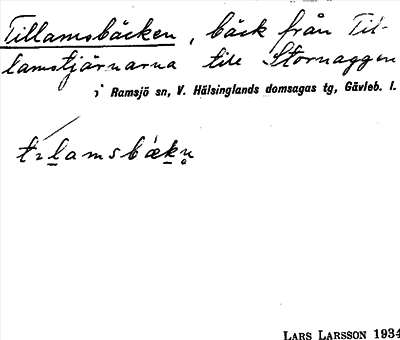 Tillamsbäcken, bäck från Til-
lamstjärnarna till Stornaggen
i Ramsjö sn, V. Hälsinglands domsagas tg, Gävleb. l.
tılamsbækn̥
LARS LARSSON 1934